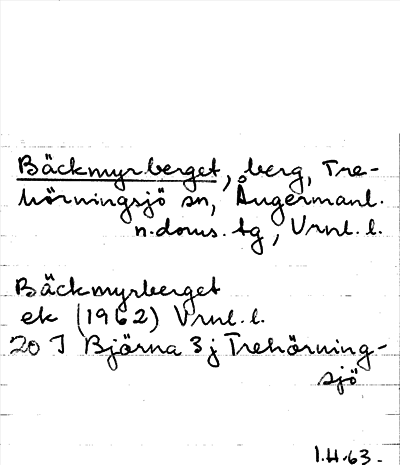 Bäckmyrberget, berg, Tre-
hörningsjö sn, Ångermanl.
n. doms. tg, Vrnl. l.
Bäckmyrberget
ek (1962) Vrnl. l.
20 I Björna 3j Trehörning-
sjö
I.H.63.